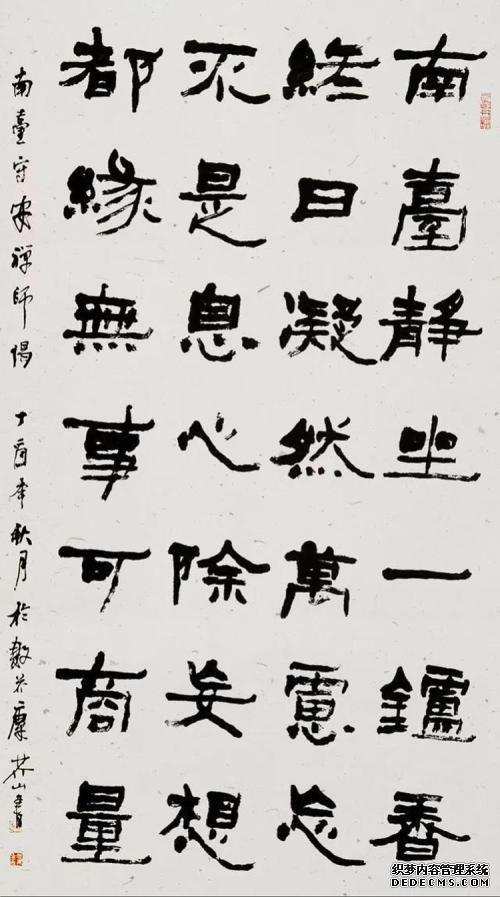 南臺靜坐一鑪香
終日凝然萬慮忘
不是息心除妄想
都緣無事可商量
南臺守安禪師偈 丁酉年秋月於
织梦内容管理系统
DEDECMS.COM